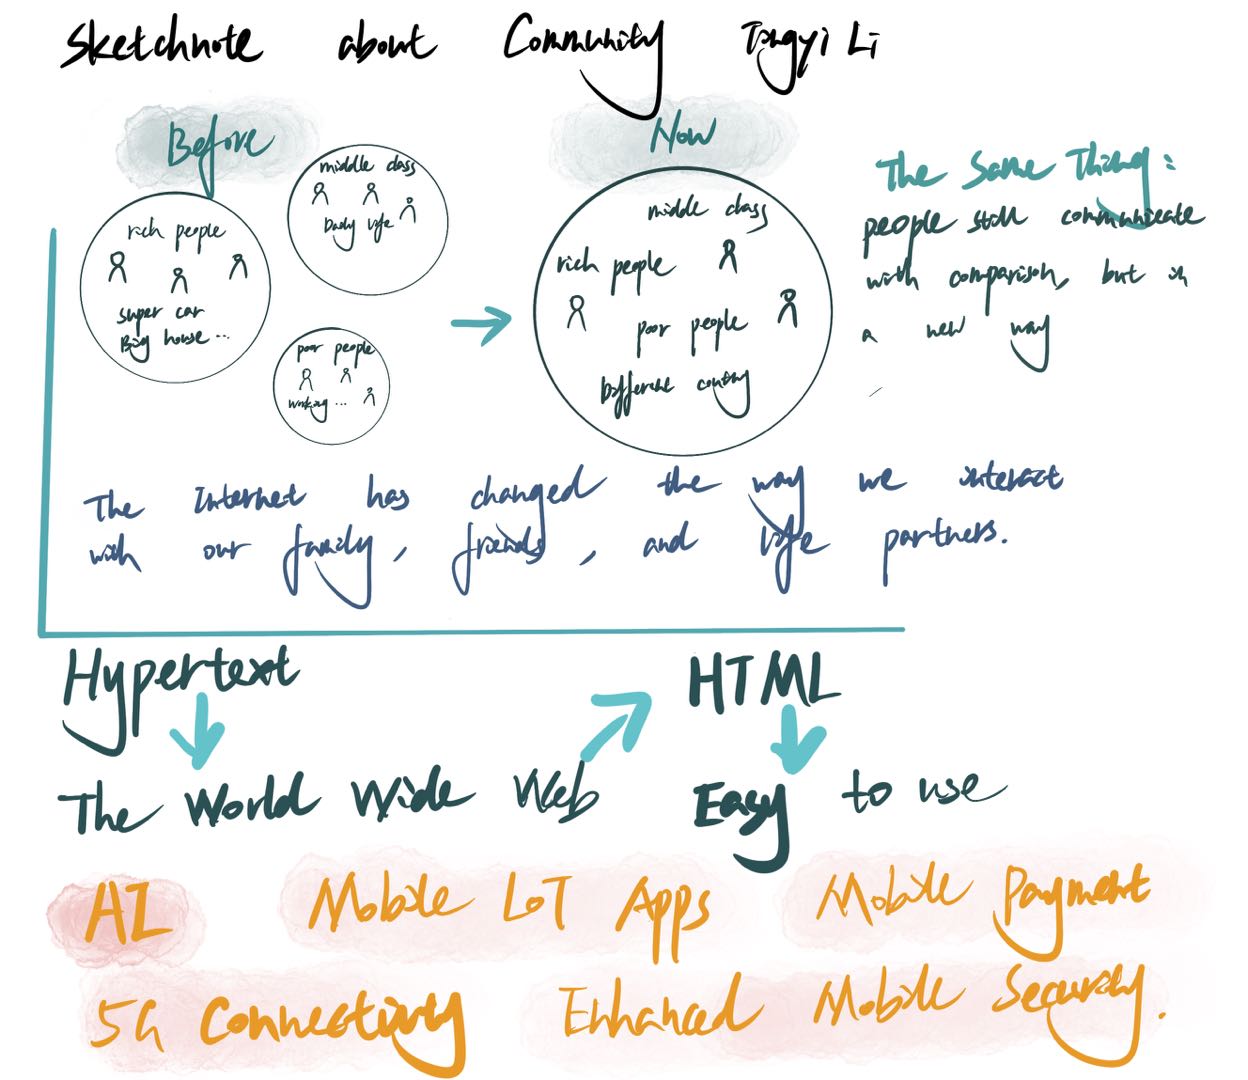 Sketchnote about Community Tongyi Li
Before
rich people
super car
Big house ...
middle class
Daily life
poor people
working ...
Now
middle class
rich people
poor people
Different country
The Same Thing:
people still communicate
with comparison, but in
a new way
The Internet has changed the way we interact
with our family, friends, and life partners.
Hypertext
The World Wide Web
HTML
Easy to use
AI
Mobile LoT Apps
Mobile Payment
5G Connectivity
Enhanced Mobile Security.